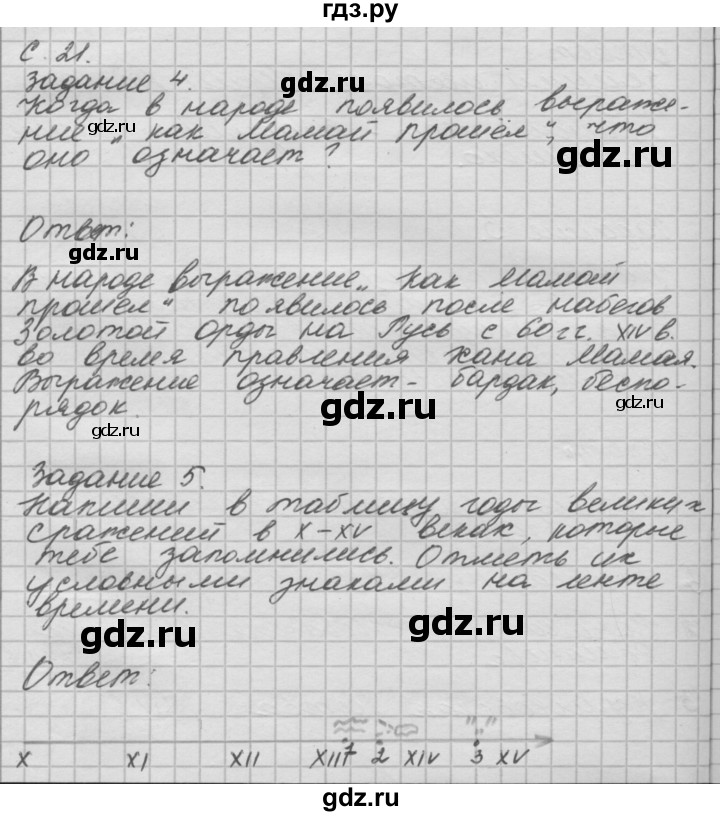 гдз.ру
С. 21.
Задание 4.
gdz.ru
Когда в народе появилось выраже-
gdz.ru
gdz.ru
ние „как Мамай прошёл“, что
оно означает?
Ответ:
gdz.ru
В народе выражение „как Мамай
прошел“ появилось после набегов
Золотой Орды на Русь с 60 гг. XIV в.
во время правления хана Мамая.
Выражение означает - бардак, беспо-
рядок.
gdz.ru
gdz.ru
gdz.ru
Задание 5.
Напиши в таблицу годы великих
сражений в X-XV веках, которые
тебе запомнились. Отметь их
условными знаками на ленте
времени.
gdz.ru
gdz.ru
Ответ:
X XI XII XIII 1 2 XIV 3 XV
gdz.ru
gdz.ru